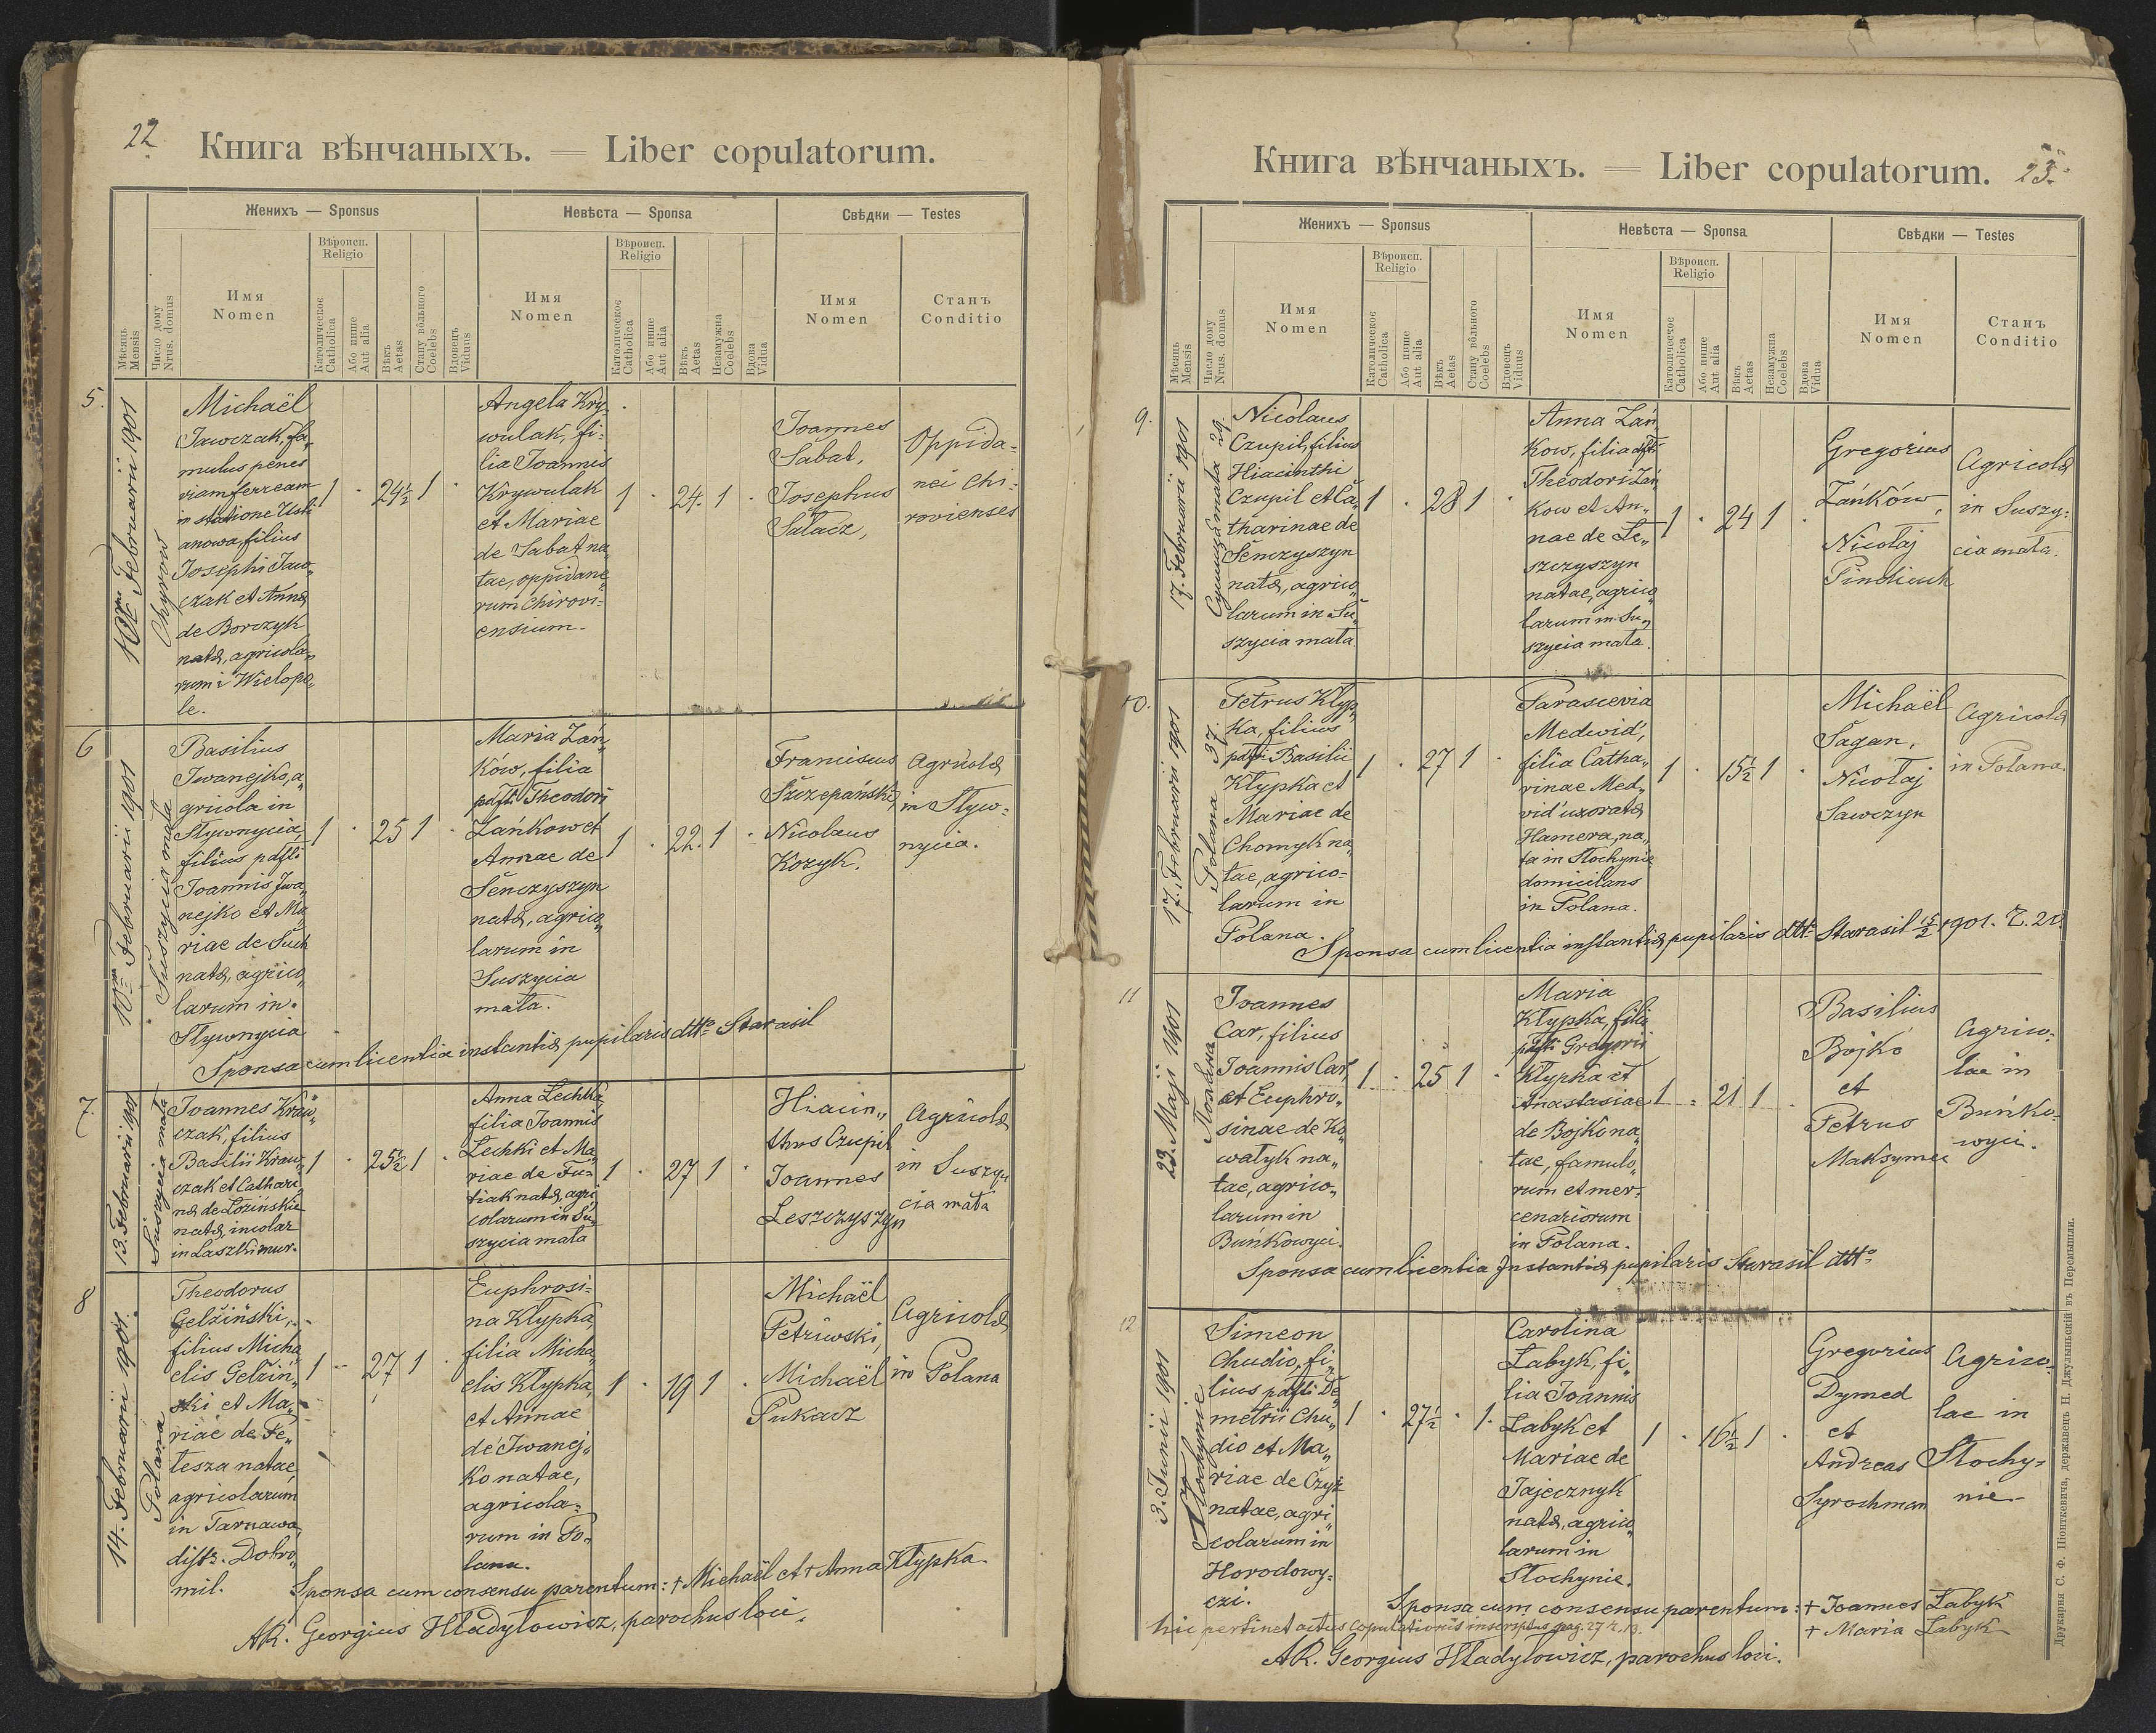 22
Книга вѣнчаныхъ. — Liber copulatorum.
Мѣсяць
Mensis
Число дому
Nrus. domus
Женихъ — Sponsus
Имя
Nomen
Вѣроисп.
Religio
Католическое
Catholica
Або инше
Aut alia
Вѣкъ
Aetas
Стану вôльного
Coelebs
Вдовець
Viduus
Невѣста — Sponsa
Имя
Nomen
Вѣроисп.
Religio
Католическое
Catholica
Або инше
Aut alia
Вѣкъ
Aetas
Незамужна
Coelebs
Вдова
Vidua
Свѣдки — Testes
Имя
Nomen
Станъ
Conditio
5.
Februarii 1901
Chyrow
Michaël
Jawczak, fa„
mulus penes
viam ferream
in statione Usti
anowa, filius
Josephi Jaw„
czak et Annæ
de Borczyk
natæ, agricola„
rum i Wielopo„
le.
1 · 24½ 1 ·
Angela Kry„
wulak, fi:
lia Joannis
Krywulak
et Mariae
de Sabat na„
tae, oppidano„
rum Chirovi=
ensium.
1 · 24. 1 ·
Joannes
Sabat,
Josephus
Sałacz,
Oppida=
nei Chi:
rovienses
6
Februarii 1901
Suszycia mała
Basilius
Iwanejko, a„
gricola in
Stywnycia,
filius pdfti
Joannis Iwa„
nejko et Ma
riae de Such
natæ, agrico„
larum in
Stywnycia
1 · 25 1 ·
Maria Zań„
ków, filia
pdfti Theodori
Zańkow et
Annae de
Senczyszyn
natæ, agrico„
larum in
Suszycia
mała.
1 · 22. 1 ·
Franciscus
Szczepański,
Nicolaus
Kozyk.
Agricolæ
in Stýw=
nycia.
Sponsa cum licentia instantiæ pupilaris dtto Starasil
7.
13. Februarii 1901
Suszycia mała
Joannes Kraw„
czak, filius
Basilii Kraw„
czak et Cathari„
næ de Łozińskie
natæ, incolar
in Laszki mur.
1 · 25½ 1 ·
Anna Lechka,
filia Joannis
Lechki et Ma„
riae de Fu=
tiak natæ, agri„
colarum in Su„
szycia mała
1 · 27 1 ·
Hiacin„
thus Czupil
Joannes
Leszczyszyn
Agricolæ
in Suszy„
cia mała
8
14. Februarii 1901.
Polana
Theodorus
Gelžiński,
filius Micha„
elis Gelžin„
ski et Ma„
riae de Fe„
tesza natae,
agricolarum
in Tarnawa,
distr. Dobro„
mil.
1 — 27 1 ·
Euphrosi=
na Klypka,
filia Micha„
elis Klypka,
et Annae
de Iwanej„
ko natae,
agricola=
rum in Po„
lana.
1 · 19 1 ·
Michaël
Petriwski,
Michaël
Pukacz
Agricolæ
in Polana
Sponsa cum consensu parentum: + Michaël et + Anna Klypka.
AR. Georgius Hładyłowicz, parochus loci.
23.
Книга вѣнчаныхъ. — Liber copulatorum.
Мѣсяць
Mensis
Число дому
Nrus. domus
Женихъ — Sponsus
Имя
Nomen
Вѣроисп.
Religio
Католическое
Catholica
Або инше
Aut alia
Вѣкъ
Aetas
Стану вôльного
Coelebs
Вдовець
Viduus
Невѣста — Sponsa
Имя
Nomen
Вѣроисп.
Religio
Католическое
Catholica
Або инше
Aut alia
Вѣкъ
Aetas
Незамужна
Coelebs
Вдова
Vidua
Свѣдки — Testes
Имя
Nomen
Станъ
Conditio
9.
17. Februarii 1901
29.
Nicolaus
Czupil, filius
Hiacinthi
Czupil et Ca„
tharinae de
Senczyszyn
natæ, agrico„
larum in Su„
szycia mała
1 · 28 1 ·
Anna Zań„
kow, filia dfti
Theodori Zań„
kow et An„
nae de Le„
szczyszyn
natae, agrico„
larum in Su„
szycia mala.
1 · 24 1 ·
Gregorius
Zańków,
Nicolaj
Pindiuch
Agricolæ
in Suszy=
cia mała.
10.
17. Februarii 1901
Polana 37.
Petrus Klyp„
ka, filius
pdfti Basilii
Klypka et
Mariae de
Chomyk na„
tae, agrico=
larum in
Polana.
1 · 27 1 ·
Parascevia
Medwid',
filia Catha„
rinae Med„
vid' uxoratæ
Hamera, na„
ta in Stochynie
domicilans
in Polana.
1 · 15½ 1 ·
Michaël
Sagan,
Nicolaj
Sawczyn
Agricolæ
in Polana.
Sponsa cum licentia instantiæ pupilaris dtto Starasil 15/2 1901. L. 21.
11
23. Maji 1901
Поляна
Joannes
Car, filius
Joannis Car,
et Euphro„
sinae de Ko„
watyk na„
tae, agrico„
larum in
Buńkowyci.
1 · 25 1 ·
Maria
Klypka, filia
pdfti Gregorii
Klypka et
Anastasiae
de Bojko na„
tae, famulo„
rum et mer=
cenariorum
in Polana.
1 · 21 1 ·
Basilius
Bojko
et
Petrus
Maksymec
Agrico=
lae in
Buńko„
wyci.
Sponsa cum licentia Instantiæ pupilaris Starasil dtto
12
3. Junii 1901
Stochynie
Simeon
Chudio, fi„
lius pdfti De„
metrii Chu„
dio et Ma„
riae de Czyż
natae, agri„
colarum in
Horodowy=
czi.
1 · 27½ · 1.
Carolina
Łabyk, fi„
lia Joannis
Łabyk et
Mariae de
Jajecznyk
natæ, agrico„
larum in
Stochynie.
1 · 16½ 1 ·
Gregorius
Dymed
et
Andreas
Syrochman
Agrico„
lae in
Stochy=
nie.
Sponsa cum consensu parentum: + Joannes Łabyk
+ Maria Łabyk
hic pertinet actus copulationis inscriptus pag. 27 r. 13.
AR. Georgius Hładyłowicz, parochus loci.
Друкарня С. Ф. Піонткевича, державець Н. Джулыньскій въ Перемышли.